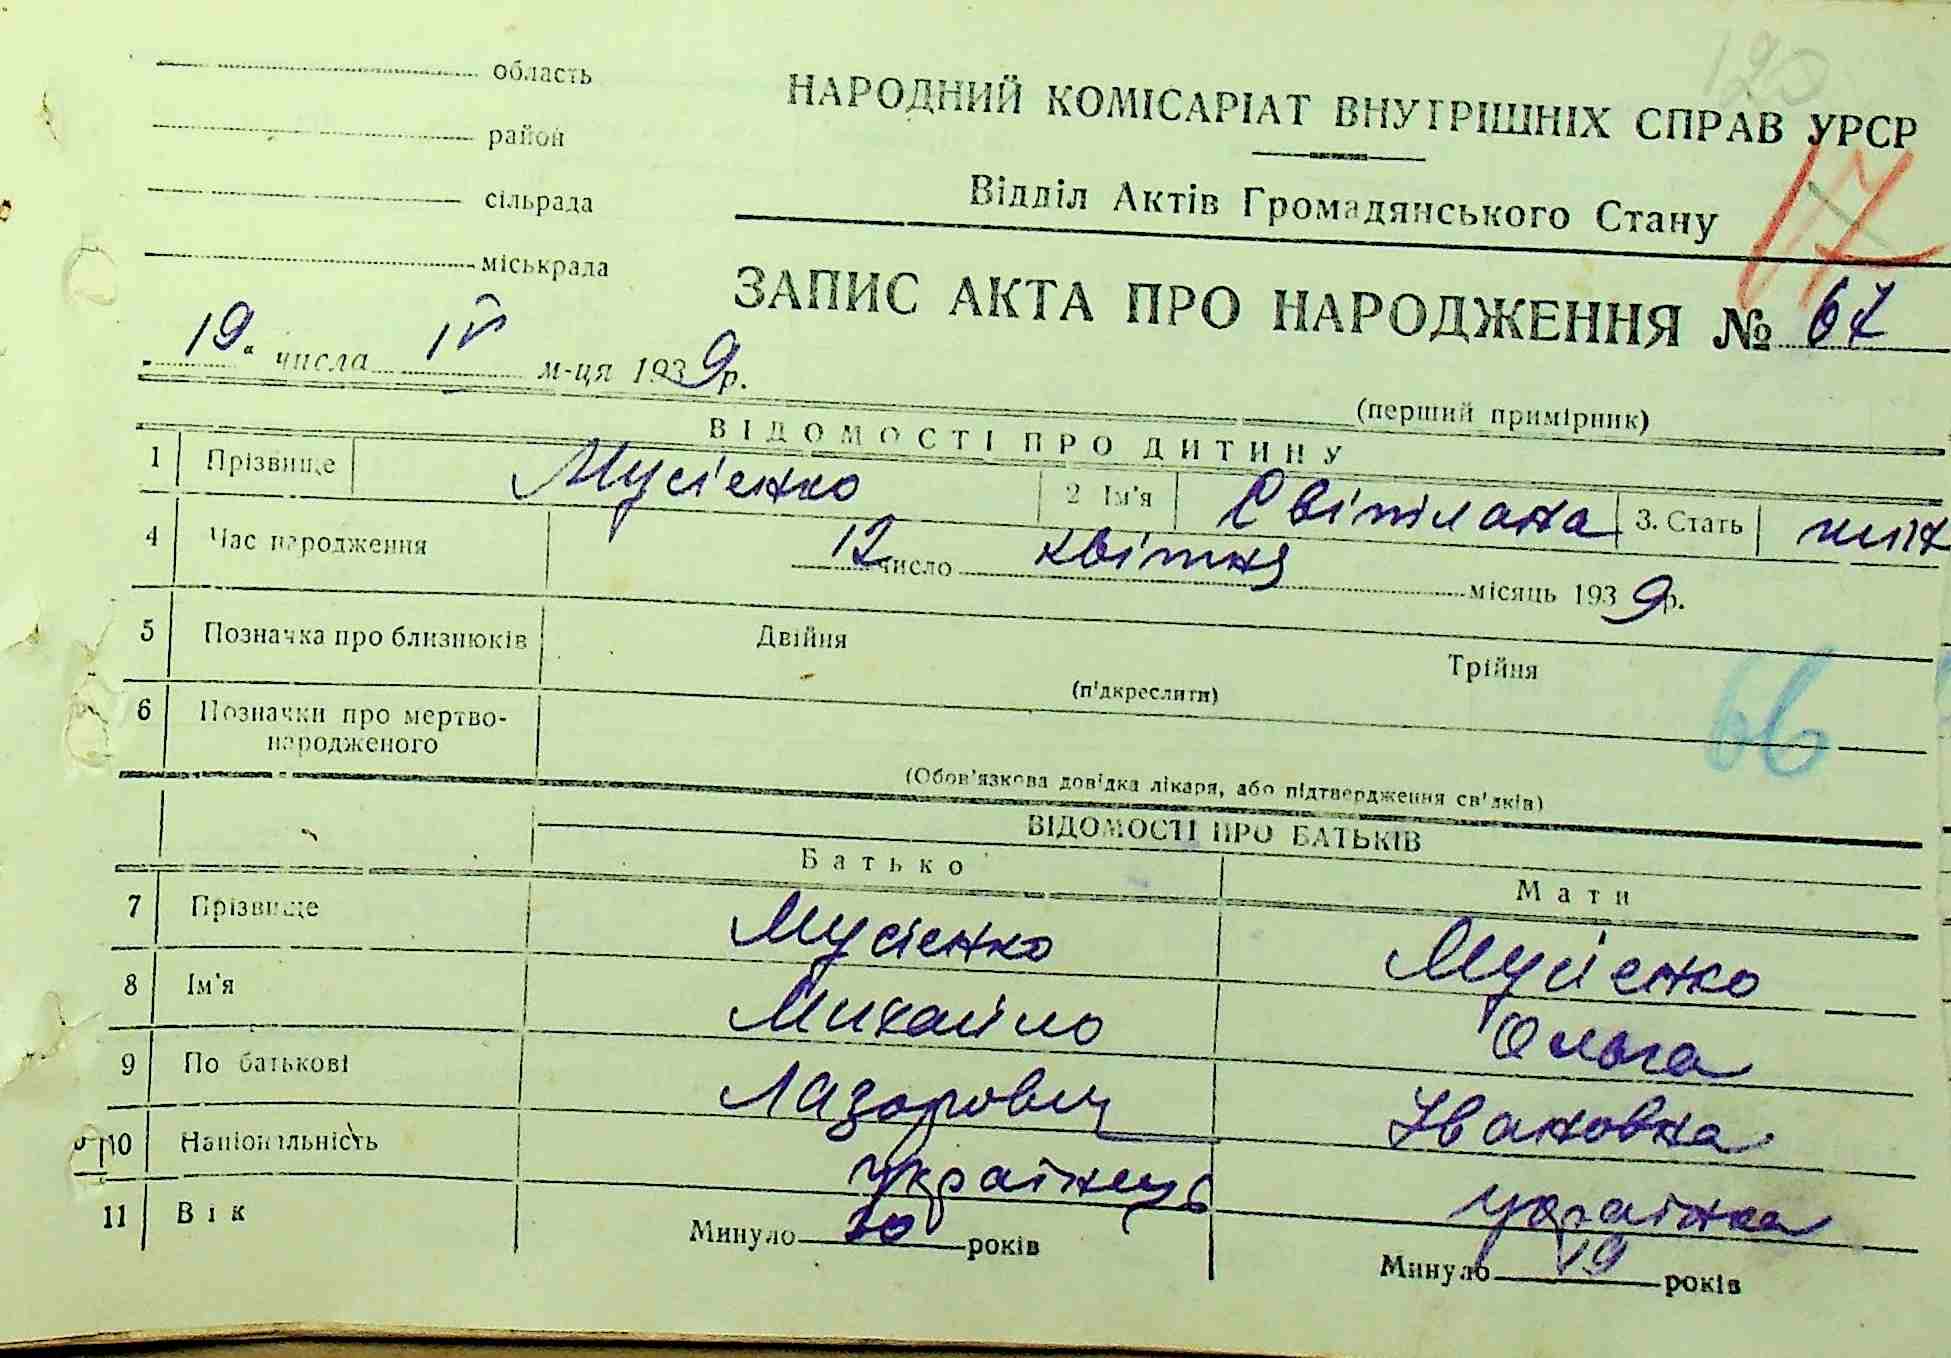 120
область
район
сільрада
міськрада
НАРОДНИЙ КОМІСАРІАТ ВНУТРІШНІХ СПРАВ УРСР
Відділ Актів Громадянського Стану
17
ЗАПИС АКТА ПРО НАРОДЖЕННЯ № 67
19 числа IV м-ця 1939р.
(перший примірник)
ВІДОМОСТІ ПРО ДИТИНУ
1 Прізвище Мусієнко 2 Ім'я Світілана 3. Стать
4 Час народження 12 число квітня місяць 1939р.
5 Позначка про близнюків Двійня Трійня
(підкреслити)
66
6 Позначки про мертво-
народженого
(Обов'язкова довідка лікаря, або підтвердження свідків)
ВІДОМОСТІ ПРО БАТЬКІВ
Батько Мати
7 Прізвище Мусієнко Мусієнко
8 Ім'я Михайло Ольга
9 По батькові Лазорович Івановна
10 Національність українець українка
11 Вік Минуло років Минуло 19 років